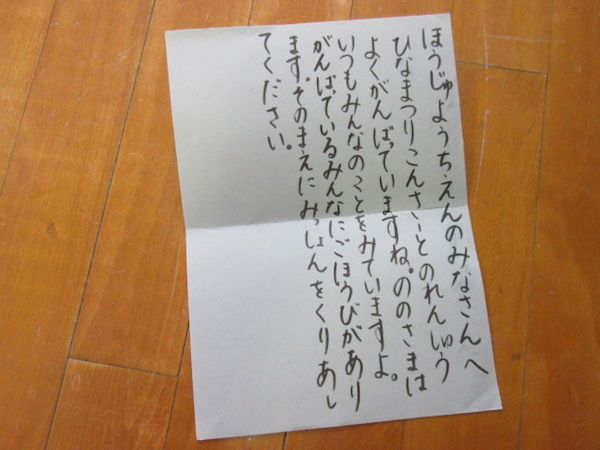 ほうじゅようちえんのみなさんへ
ひなまつりこんさーとのれんしゅう
よくがんばっていますね。ののさまは
いつもみんなのことをみていますよ。
がんばっているみんなにごほうびがあり
ます。そのまえにみっしょんをくりあし
てください。